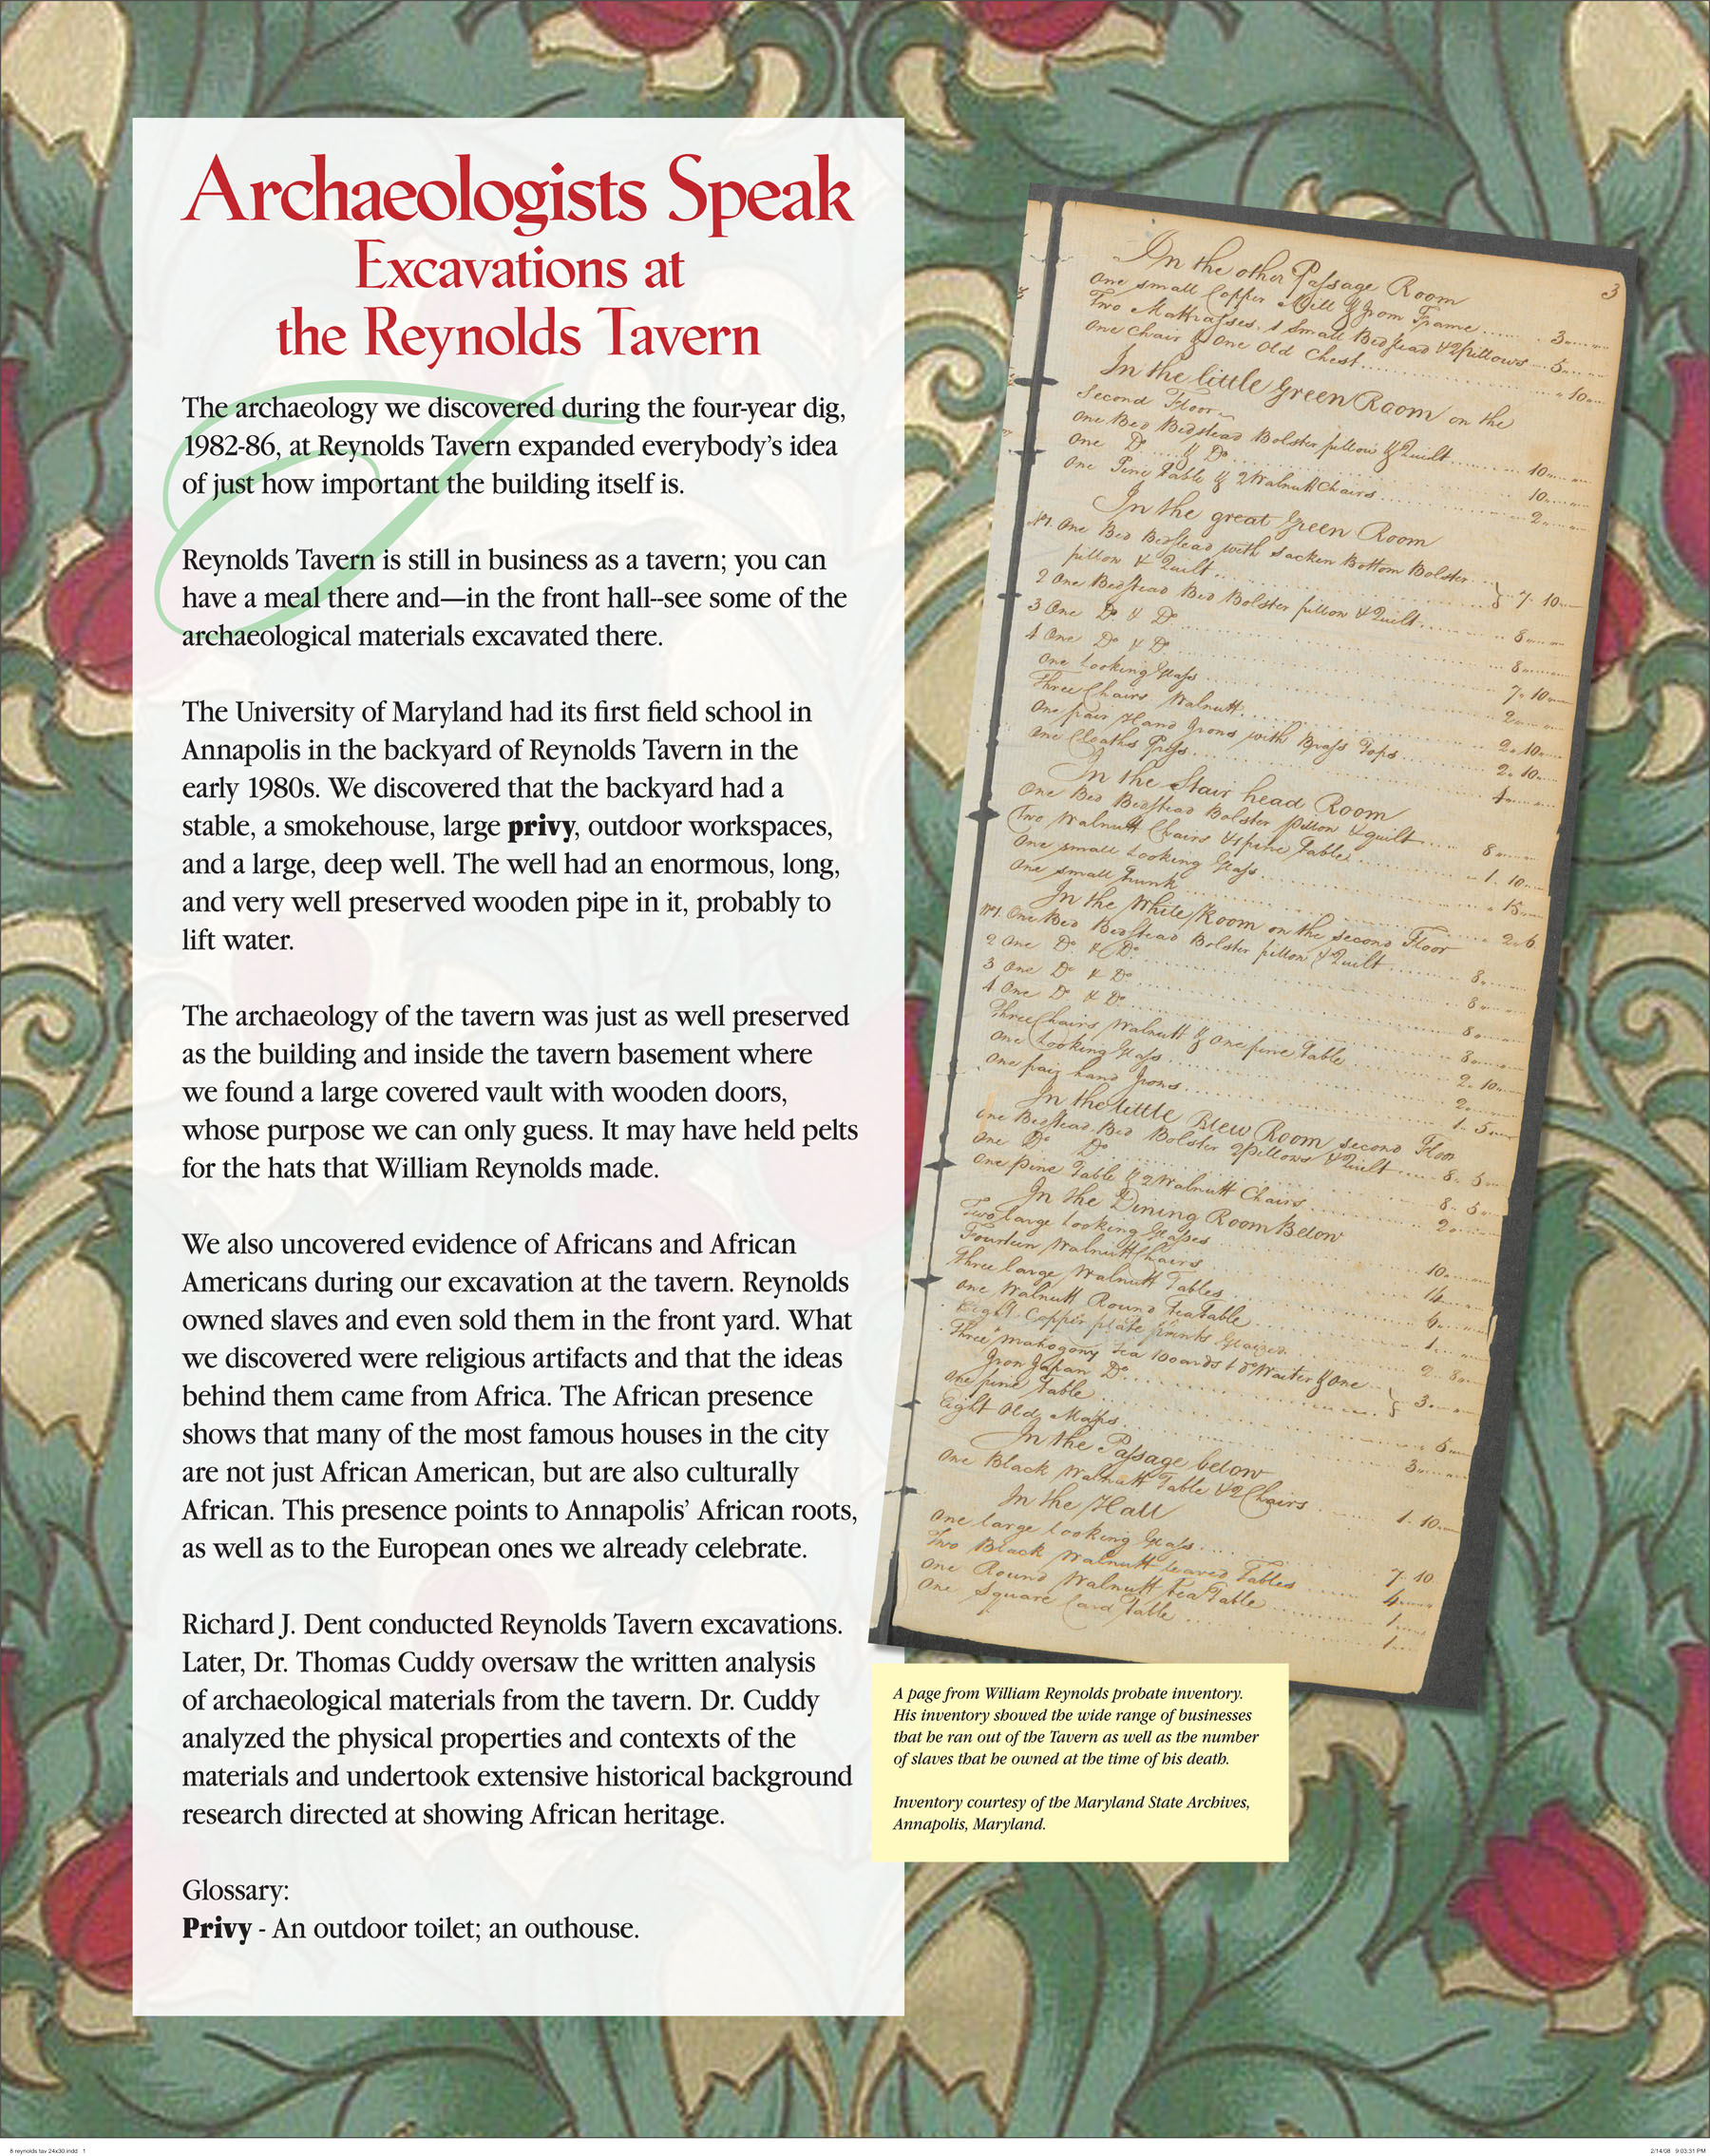 Archaeologists Speak
Excavations at
the Reynolds Tavern
The archaeology we discovered during the four-year dig,
1982-86, at Reynolds Tavern expanded everybody's idea
of just how important the building itself is.
Reynolds Tavern is still in business as a tavern; you can
have a meal there and—in the front hall--see some of the
archaeological materials excavated there.
The University of Maryland had its first field school in
Annapolis in the backyard of Reynolds Tavern in the
early 1980s. We discovered that the backyard had a
stable, a smokehouse, large privy, outdoor workspaces,
and a large, deep well. The well had an enormous, long,
and very well preserved wooden pipe in it, probably to
lift water.
The archaeology of the tavern was just as well preserved
as the building and inside the tavern basement where
we found a large covered vault with wooden doors,
whose purpose we can only guess. It may have held pelts
for the hats that William Reynolds made.
We also uncovered evidence of Africans and African
Americans during our excavation at the tavern. Reynolds
owned slaves and even sold them in the front yard. What
we discovered were religious artifacts and that the ideas
behind them came from Africa. The African presence
shows that many of the most famous houses in the city
are not just African American, but are also culturally
African. This presence points to Annapolis' African roots,
as well as to the European ones we already celebrate.
Richard J. Dent conducted Reynolds Tavern excavations.
Later, Dr. Thomas Cuddy oversaw the written analysis
of archaeological materials from the tavern. Dr. Cuddy
analyzed the physical properties and contexts of the
materials and undertook extensive historical background
research directed at showing African heritage.
Glossary:
Privy - An outdoor toilet; an outhouse.
3
In the other Passage Room
One small Copper Mill & Iron Frame ...... 3
Two Mattrasses, 1 Small Bedstead & 2 pillows ... 5
One Chair & One Old Chest ...... 10
In the little Green Room on the
Second Floor
One Bed Bedstead Bolster pillow & Quilt ...... 10
One Do & Do ...... 10
One Pine Table & 2 Walnutt Chairs ...... 2
In the great Green Room
No 1. One Bed Bedstead with Sacken Bottom Bolster
pillow & Quilt ...... 7. 10
2 One Bedstead Bed Bolster pillow & Quilt ...... 8
3 One Do & Do ...... 8
4 One Do & Do ...... 7. 10
One Looking Glass ...... 2
Three Chairs Walnutt ...... 2. 10
One pair Hand Irons with Brass Tops ...... 2. 10
One Cloaths Press ...... 4
In the Stair head Room
One Bed Bedstead Bolster pillow & quilt ...... 8
Two Walnutt Chairs & 1 pine Table ...... 1. 10
One small Looking Glass ...... 15
One small Trunk ...... 2. 6
In the White Room on the second Floor
No 1. One Bed Bedstead Bolster pillow & Quilt ...... 8
2 One Do & Do ...... 8
3 One Do & Do ...... 8
4 One Do & Do ...... 8
Three Chairs Walnutt & One pine Table ...... 2. 10
One Looking Glass ...... 2
One pair hand Irons ...... 1. 5
In the little Blew Room second Floor
One Bedstead Bed Bolster 2 pillows & Quilt ...... 8. 5
One Do Do ...... 8. 5
One pine Table & 2 Walnutt Chairs ...... 2
In the Dining Room Below
Two large Looking Glasses ...... 10
Fourteen Walnutt Chairs ...... 14
Three large Walnutt Tables ...... 6
One Walnutt Round Tea table ...... 1
Eight Copper plate prints Glaized ...... 2. 8
Three mahogony Tea boards 1 Do Waiter & One
Iron Japan Do ...... 3
One pine Table ...... 5
Eight Old Maps ...... 3
In the Passage below
One Black Walnutt Table & 2 Chairs ...... 1. 10
In the Hall
One large Looking Glass ...... 7. 10
Two Black Walnutt leaved Tables ...... 4
One Round Walnutt Tea Table ...... 1
One Square Card Table ...... 1
A page from William Reynolds probate inventory.
His inventory showed the wide range of businesses
that he ran out of the Tavern as well as the number
of slaves that he owned at the time of his death.
Inventory courtesy of the Maryland State Archives,
Annapolis, Maryland.
8 reynolds tav 24x30.indd 1
2/14/08 9:03:31 PM